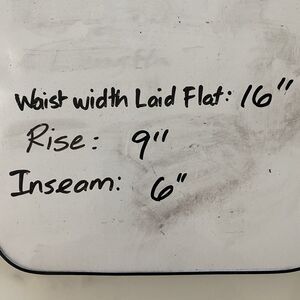 Waist width Laid Flat: 16"
Rise: 9"
Inseam: 6"